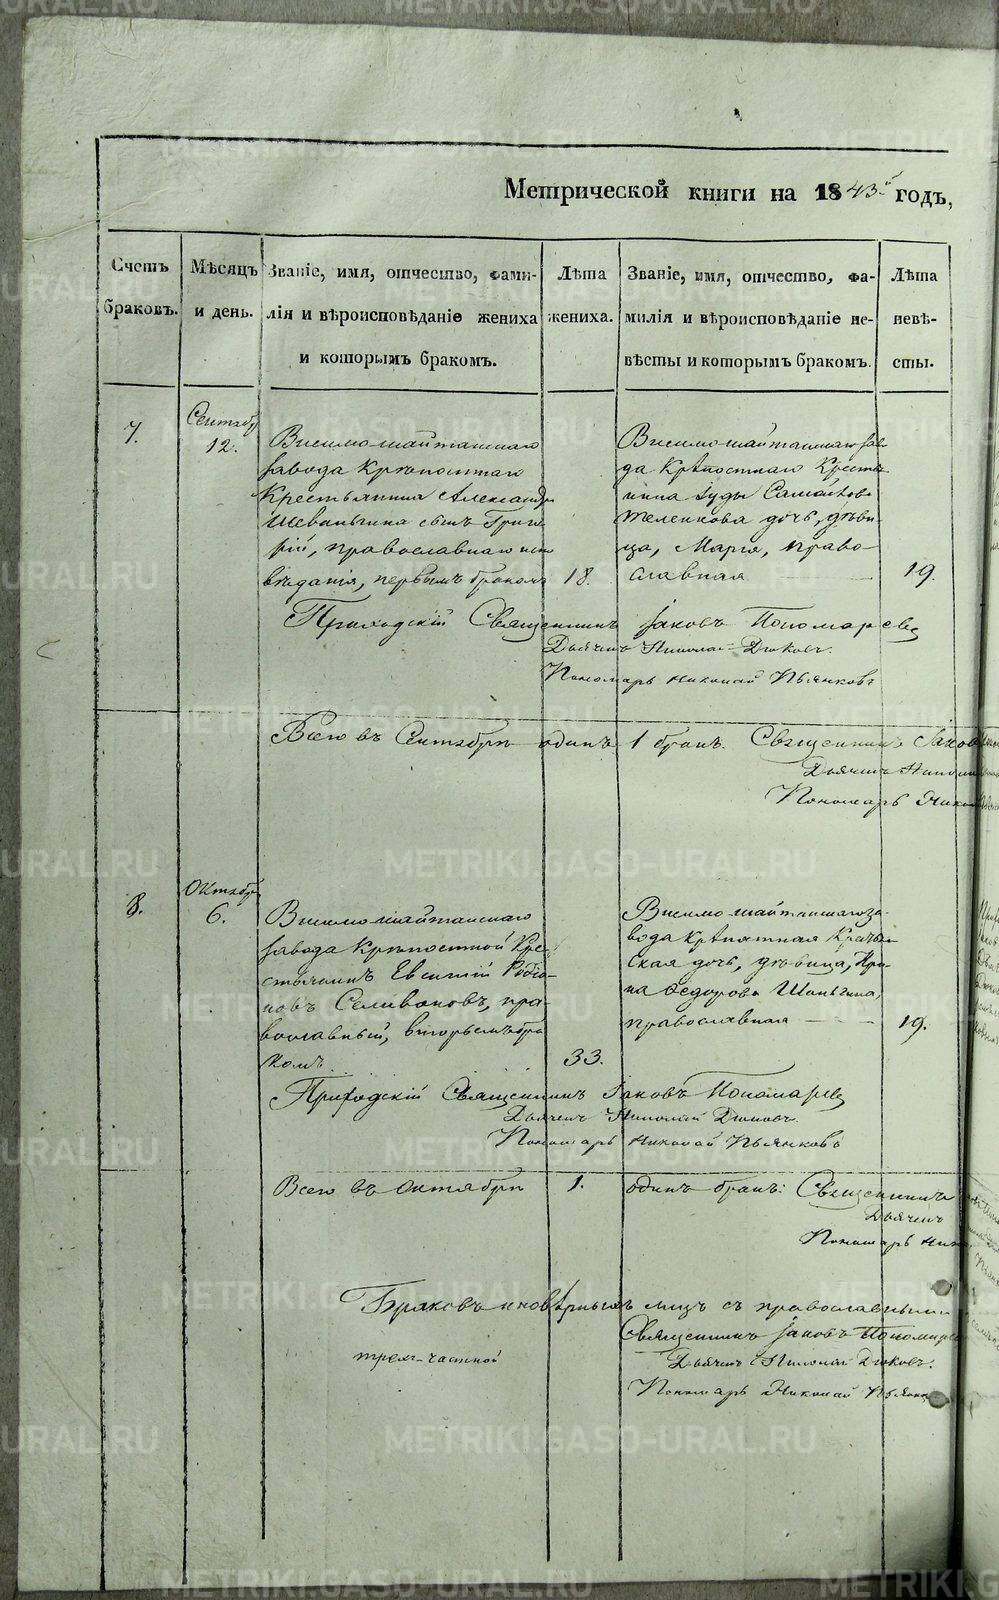 Метрической книги на 1843й годъ,
Счетъ браковъ.
Мѣсяцъ и день.
Званіе, имя, отчество, фами-
лія и вѣроисповѣданіе жениха
и которымъ бракомъ.
Лѣта
жениха.
Званіе, имя, отчество, фа-
милія и вѣроисповѣданіе не-
вѣсты и которымъ бракомъ.
Лѣта
невѣ-
сты.
7.
Сентябр
12.
Висимошайтанскаго
завода Крѣпостнаго
Крестьянина Александра
сынъ Григо-
рій, православнаго испо
вѣданія, первымъ бракомъ
18.
Висимошайтанскаго заво
да Крѣпостнаго Крестья
нина Іуды
Теленкова дочь, дѣви-
ца, Марія, право-
славная
19.
Приходскій Священникъ Іаковъ Пономаревъ
Дьячекъ Николай Дюковъ.
Пономарь Николай Пьянковъ
Всего въ Сентябрѣ одинъ 1 бракъ. Священникъ Іаковъ
Дьячекъ
Пономарь
8.
Октябр
6.
Висимошайтанскаго
завода Крѣпостной Кре
стьянинъ Евсигній Родіо-
новъ Селивановъ, пра-
вославный, вторымъ бра
комъ
33.
Висимошайтанскаго за-
вода Крѣпостная Крестьян
ская дочь, дѣвица,
на Федорова Шаньгина,
православная
19.
Приходскій Священникъ Іаковъ Пономаревъ
Дьячекъ Николай Дюковъ.
Пономарь Николай Пьянковъ
Всего въ Октябрѣ 1. одинъ бракъ: Священникъ
Дьячекъ
Пономарь
Браковъ иновѣрныхъ лицъ съ православными
Священникъ Іаковъ Пономарев
Дьячекъ Николай Дюковъ.
Пономарь Николай Пьянк
METRIKI.GASO-URAL.RU